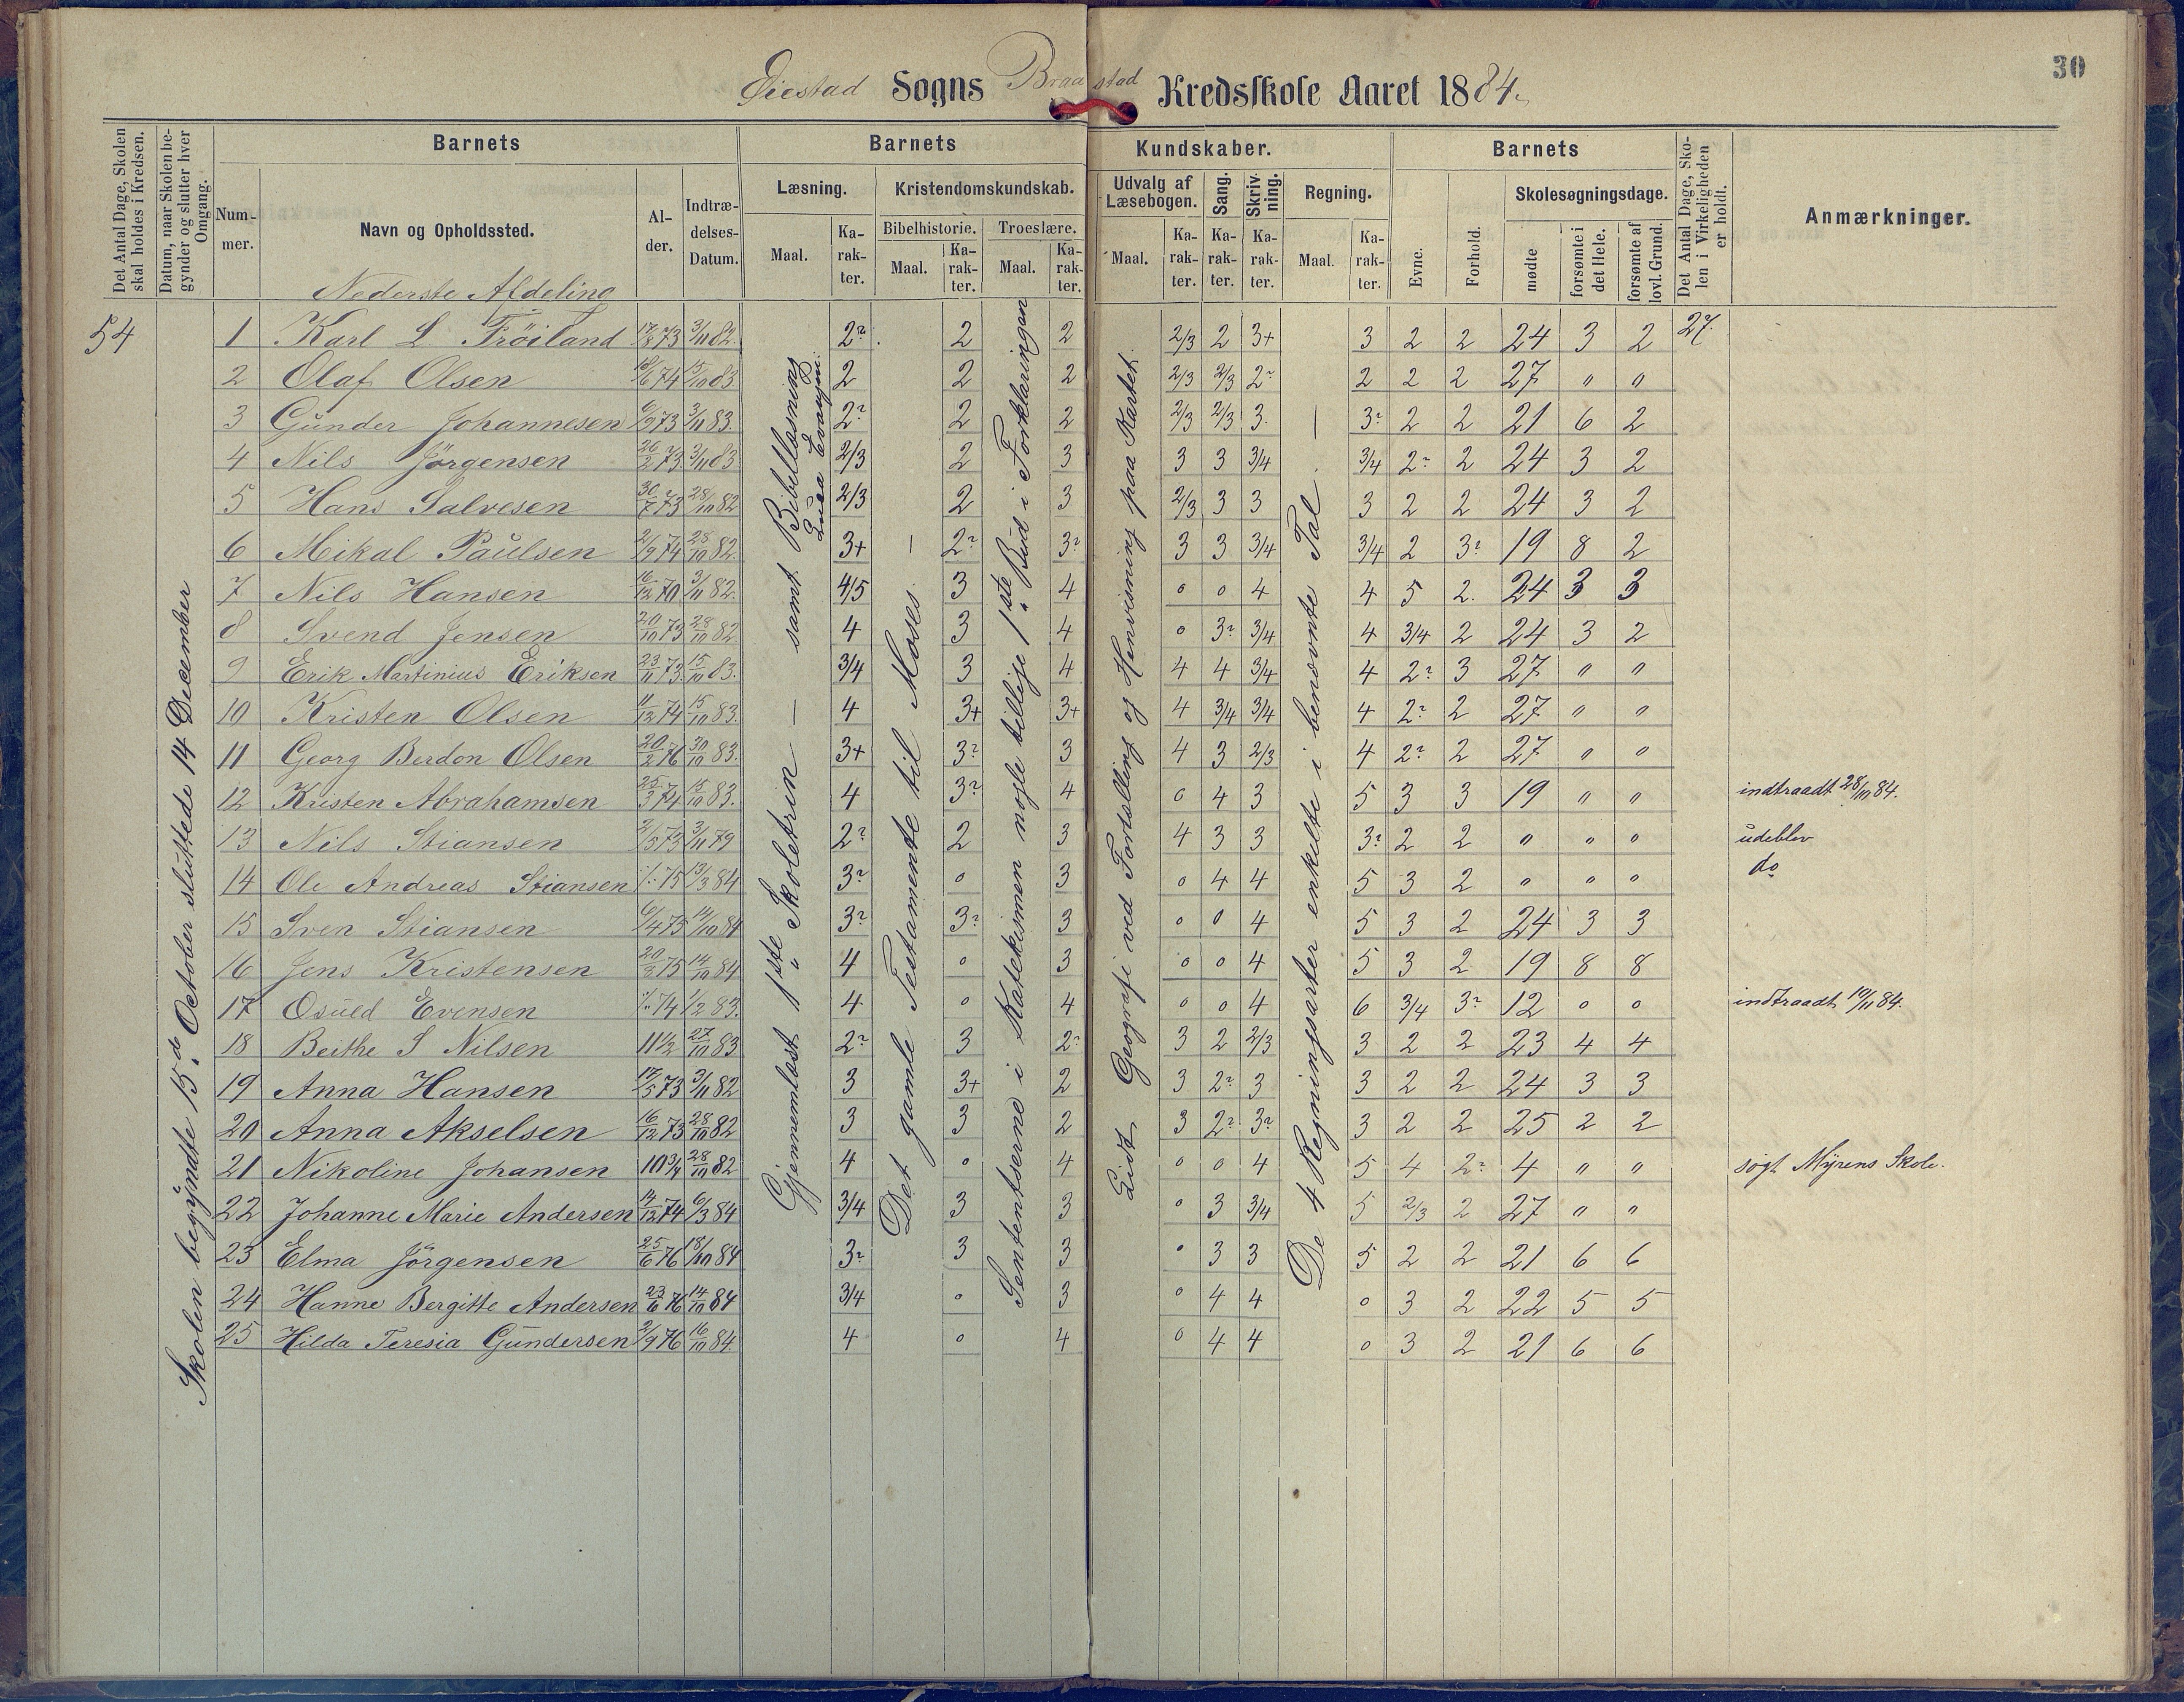 30
Øiestad Sogns Braastad Kredsskole Aaret 1884.
Det Antal Dage, Skolen skal holdes i Kredsen.
Datum, naar Skolen begynder og slutter hver Omgang.
Barnets
Nummer.
Navn og Opholdssted.
Alder.
Indtrædelses-Datum.
Barnets Kundskaber.
Læsning.
Maal.
Karakter.
Kristendomskundskab.
Bibelhistorie.
Maal.
Karakter.
Troeslære.
Maal.
Karakter.
Udvalg af Læsebogen.
Maal.
Karakter.
Sang.
Karakter.
Skrivning.
Karakter.
Regning.
Maal.
Karakter.
Barnets
Evne.
Forhold.
Skolesøgningsdage.
mødte
forsømte i det Hele.
forsømte af lovl. Grund.
Det Antal Dage, Skolen i Virkeligheden er holdt.
Anmærkninger.
Nederste Afdeling
54
Skolen begyndte 15de October sluttede 14 December
Gjennemlæst 1ste Skoletrin — samt Bibellæsning Luca Evangeni:
Det gamle Testamente til Moses. —
Sententserne i Katekismen nogle tillige 1ste Bud i Forklaringen
Lidt Geografi ved Fortælling og Henvisning paa Kartet.
De 4 Regningsarter enkelte i benævnte Tal. —
1 Karl L Tröiland 17/8 73 3/11 82. 2? 2 2 2/3 2 3+ 3 2 2 24 3 2 27.
2 Olaf Olsen 18/6 74 15/10 83 2 2 2 2/3 2/3 2? 2 2 2 27 " 0
3 Gunder Johannesen 6/9 73 3/11 83. 2? 2 2 2/3 2/3 3. 3? 2 2 21 6 2
4 Nils Jörgensen 26/2 73 3/11 83 2/3 2 3 3 3 3/4 3/4 2? 2 24 3 2
5 Hans Salvesen 30/7 73 28/10 82 2/3 2 3 2/3 3 3 3 2 2 24 3 2
6 Mikal Paulsen 2/9 74 28/10 82. 3+ 2? 3? 3 3 3/4 3/4 2 3? 19 8 2
7 Nils Hansen 16/12 70 3/11 82. 4/5 3 4 0 0 4 4 5 2. 24 3 3
8 Svend Jensen 20/10 73 28/10 82 4 3 4 0 3? 3/4 4 3/4 2 24 3 2
9 Erik Martinius Eriksen 23/11 73. 15/10 83. 3/4 3 4 4 4 3/4 4 2? 3 27 " "
10 Kristen Olsen 11/12 74 15/10 83. 4 3+ 3+ 4 3/4 3/4 4 2? 2 27 " 0
11 Georg Berdon Olsen 20/2 76 30/10 83. 3+ 3? 3 4 3 2/3 4 2? 2 27 0 0
12 Kristen Abrahamsen 25/3 74 15/10 83. 4 3? 4 0 4 3 5 3 3 19 " " indtraadt 28/10 84.
13 Nils Stiansen 2/5 73 3/11 79 2? 2 3 4 3 3 3? 2 2 " " 0 udeblev
14 Ole Andreas Stiansen 75 13/3 84 3? 0 3 0 4 4 5 3 2 " " 0 do
15 Sven Stiansen 6/4 75 14/10 84 3? 3? 3 0 0 4 5 3 2 24 3 3
16 Jens Kristensen 20/3 75 14/10 84 4 0 3 0 0 4 5 3 2 19 8 8
17 Osuld Evensen 74 1/2 83. 4 0 4 0 0 4 6 3/4 3? 12 0 0 indtraadt 10/11 84.
18 Beithe S Nilsen 11 1/2 27/10 83 2? 3 2? 3 2 2/3 3 2 2 23 4 4
19 Anna Hansen 17/5 73 3/11 82 3 3+ 2 3 2? 3 3 2 2 24 3 3
20 Anna Akselsen 16/12 73 28/10 82 3 3 2 3 2? 3? 3 2 2 25 2 2
21 Nikoline Johansen 10 3/4 28/10 82 4 0 4 0 0 4 5 4 2? 4 " " søgt Myrens Skole.
22 Johanne Marie Andersen 14/12 74 6/3 84 3/4 3 3 0 3 3/4 5 2/3 2 27 " "
23 Elma Jörgensen 25/6 76 18/10 84 3? 3 3 0 3 3 5 2 2 21 6 6
24 Hanne Bergitte Andersen 23/6 76 14/10 84 3/4 0 3 0 4 4 0 3 2 22 5 5
25 Hilda Teresia Gundersen 2/9 76 16/10 84. 4 0 4 0 4 4 0 3 2 21 6 6